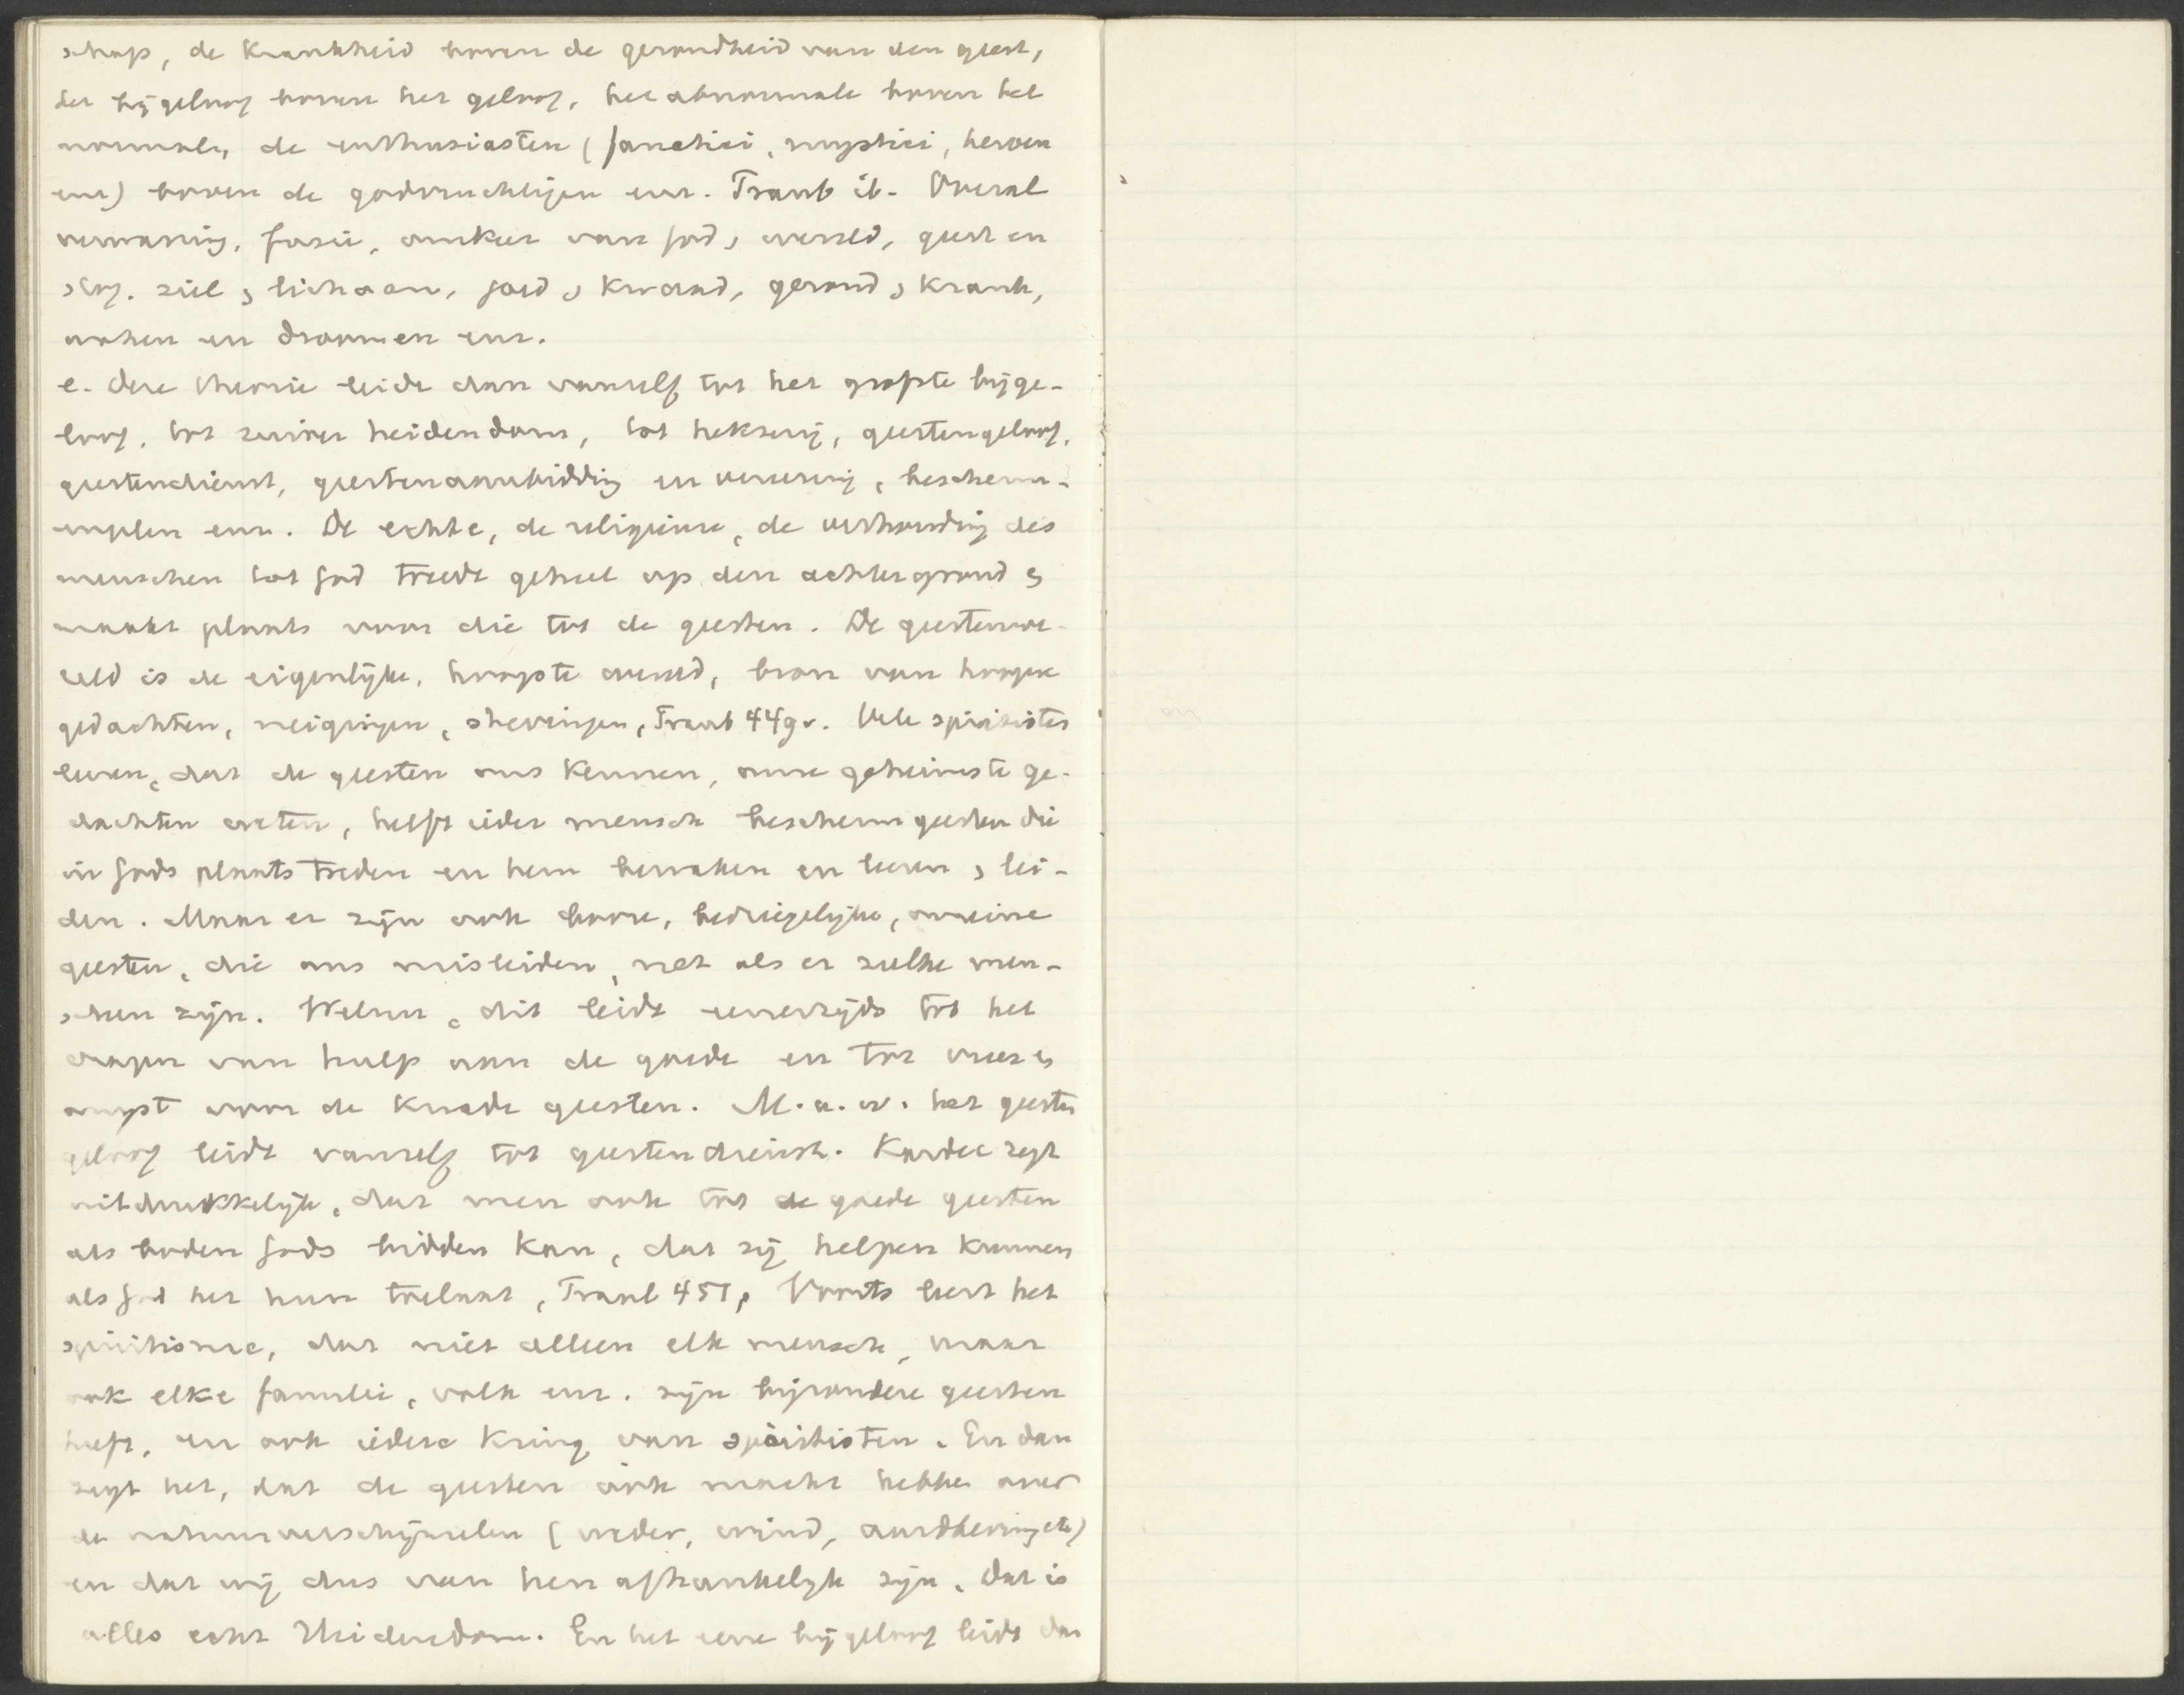 schap, de krankheid boven de gezondheid van den geest,
het bijgeloof boven het geloof, het abnormale boven het
normale, de enthusiasten (fanatici, mystici, heroen
enz) boven de godvruchtigen enz. Traub ib. Overal
verwarring, fusie, omkeer van God & wereld, geest en
stof. ziel & lichaam, goed & kwaad, gezond & krank,
waken en droomen enz.
e. Deze theorie leidt dan vanzelf tot het grofste bijge-
loof, tot zuiver heidendom, tot hekserij, geestengeloof,
geestendienst, geestenaanbidding en vereering, bescherm-
engelen enz. De echte, de religieuse, de verhouding des
menschen tot God treedt geheel op den achtergrond &
maakt plaats voor die tot de geesten. De geestenwe-
reld is de eigenlijke, hoogste wereld, bron van hoogere
gedachten, neigingen, strevingen, Traub 449v. Vele spiritisten
leeren, dat de geesten ons kennen, onze geheimste ge-
dachten weten, heeft ieder mensch beschermgeesten die
in Gods plaats treden en hem bewaken en leeren & lei-
den. Maar er zijn ook booze, bedriegelijke, onreine
geesten, die ons misleiden, net als er zulke men-
schen zijn. Welnu, dit leidt eenerzijds tot het
vragen van hulp aan de goede en tot vrees &
angst voor de kwade geesten. M.a.w. het geesten
geloof leidt vanzelf tot geestendienst. Kardec zegt
uitdrukkelijk, dat men ook tot de goede geesten
als boden Gods bidden kan, dat zij helpen kunnen
als God het hun toelaat, Traub 451, Voorts leert het
spiritisme, dat niet alleen elk mensch, maar
ook elke familie, volk enz. zijn bijzondere geesten
heeft, en ook iedere kring van spiritisten. En dan
zegt het, dat de geesten ook macht hebben over
de natuurverschijnselen (weder, wind, aardbeving etc)
en dat wij dus van hen afhankelijk zijn. Dat is
alles echt Heidendom. En het eene bijgeloof leidt dan